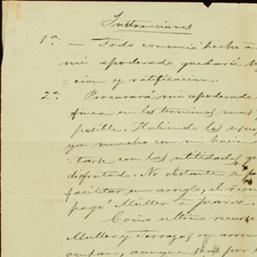 Instrucciones
1ª — Todo convenio hecho a
mi apoderado quedará
cion y ratificacion.
2ª Procurará mi apoderado
en los terminos mas
posible. Habiendo los
ya mucho con mi hacia
con las utilidades que
disfrutado. No obstante se
facilitar un arreglo, el
pagó Müller a Juarez.
Como ultimo recurso
Muller y Terrazas en
ocupar, aunque sea por